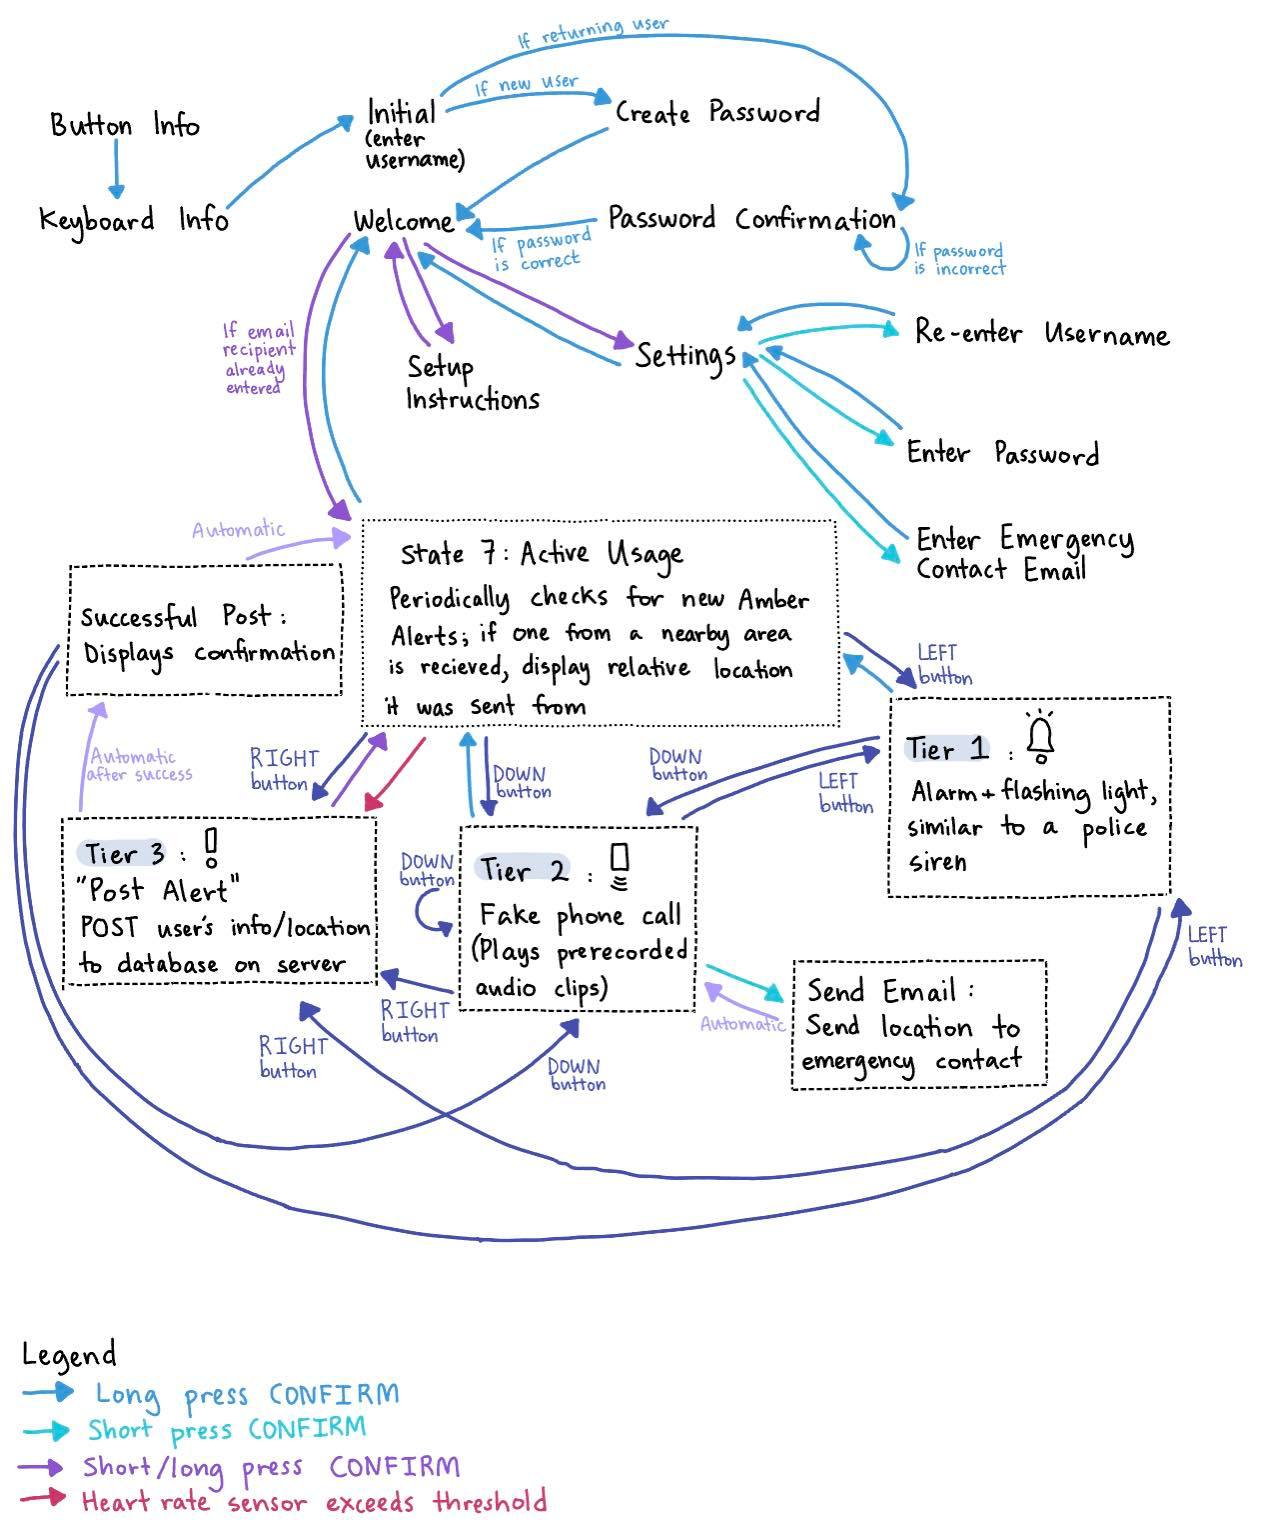 If returning user
If new user
Button Info
Initial
(enter
username)
Create Password
Keyboard Info
Welcome
Password Confirmation
If password
is correct
If password
is incorrect
If email
recipient
already
entered
Setup
Instructions
Settings
Re-enter Username
Enter Password
Enter Emergency
Contact Email
Automatic
State 7: Active Usage
Periodically checks for new Amber
Alerts; if one from a nearby area
is recieved, display relative location
it was sent from
Successful Post:
Displays confirmation
LEFT
button
Automatic
after success
RIGHT
button
DOWN
button
DOWN
button
LEFT
button
Tier 1 :
Alarm + flashing light,
similar to a police
siren
Tier 3 : !
"Post Alert"
POST user's info/location
to database on server
DOWN
button
Tier 2 :
Fake phone call
(Plays prerecorded
audio clips)
RIGHT
button
RIGHT
button
DOWN
button
Automatic
Send Email:
Send location to
emergency contact
LEFT
button
Legend
Long press CONFIRM
Short press CONFIRM
Short/long press CONFIRM
Heart rate sensor exceeds threshold